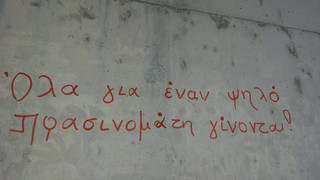 Ὅλα για ἐναν ψηλό
Πρασινομάτη γίνονται!